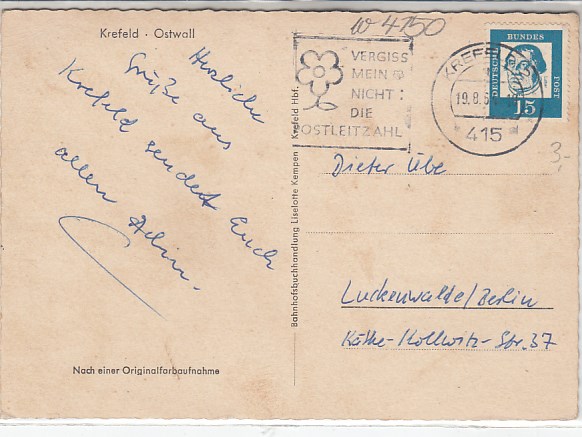 w 4150
Krefeld · Ostwall
Herzliche
Grüße aus
Krefeld sendet Euch
allen
Nach einer Originalfarbaufnahme
Bahnhofsbuchhandlung Liselotte Kempen Krefeld Hbf.
VERGISS
MEIN
NICHT:
DIE
POSTLEITZAHL
KREFELD
19.8.6
415
DEUTSCHE
BUNDES
POST
15
3,-
Dieter Übe
Luckenwalde/Berlin
Käthe-Kollwitz-Str. 37